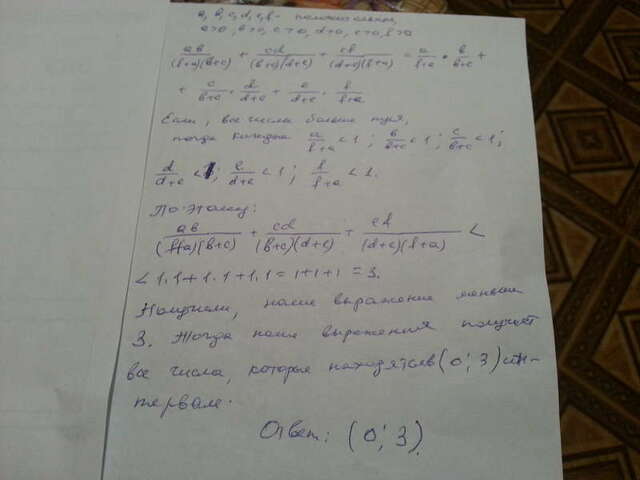 a, b, c, d, e, f - положительные,
a>0, b>0, c>0, d>0, e>0, f>0
ab/((f+a)(b+c)) + cd/((b+c)(d+e)) + ef/((d+e)(f+a)) = a/(f+a) · b/(b+c) +
+ c/(b+c) · d/(d+e) + e/(d+e) · f/(f+a)
Если, все числа больше нуля,
тогда каждая a/(f+a) < 1; b/(b+c) < 1; c/(b+c) < 1;
d/(d+e) < 1; e/(d+e) < 1; f/(f+a) < 1.
Поэтому:
ab/((f+a)(b+c)) + cd/((b+c)(d+e)) + ef/((d+e)(f+a)) <
< 1·1+1·1+1·1 = 1+1+1 = 3.
Получили, наше выражение меньше
3. Тогда наше выражения получает
все числа, которые находятся в (0; 3) ин-
тервале.
Ответ: (0; 3).